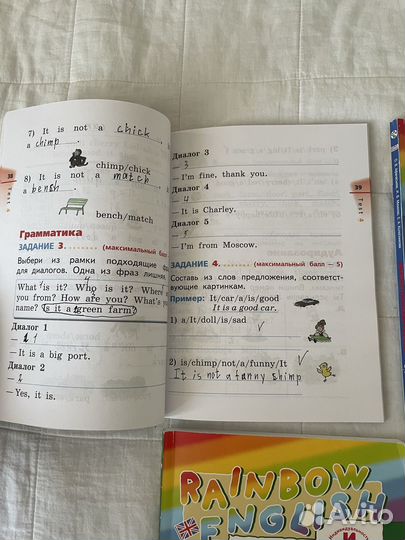 7) It is not a chick,
a chimp.
chimp/chick
8) It is not a match,
a bensh.
bench/match
38
Test 4
Грамматика
ЗАДАНИЕ 3. (максимальный
Выбери из рамки подходящие
для диалогов. Одна из фраз лишняя.
What is it? Who is it? Where
you from? How are you? What's
name? Is it a green farm?
Диалог 1
— 1
— It is a big port.
Диалог 2
— 2
— Yes, it is.
Диалог 3
— 3
— I'm fine, thank you.
Диалог 4
— 4
— It is Charley.
Диалог 5
— 5
— I'm from Moscow.
39
Test 4
ЗАДАНИЕ 4. (максимальный балл — 5)
Составь из слов предложения, соответствующие картинкам.
Пример: It/car/a/is/good
It is a good car.
1) a/It/doll/is/sad
2) is/chimp/not/a/funny/It
It is not a fanny shimp
RAINBOW
ENGLISH
Avito